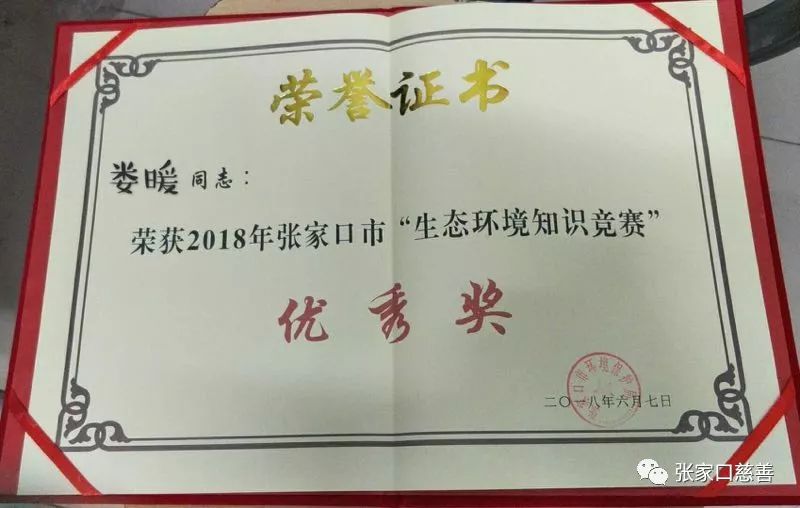 荣誉证书
娄暖同志：
荣获2018年张家口市“生态环境知识竞赛”
优秀奖
张家口市环境保护局
二〇一八年六月七日
张家口慈善